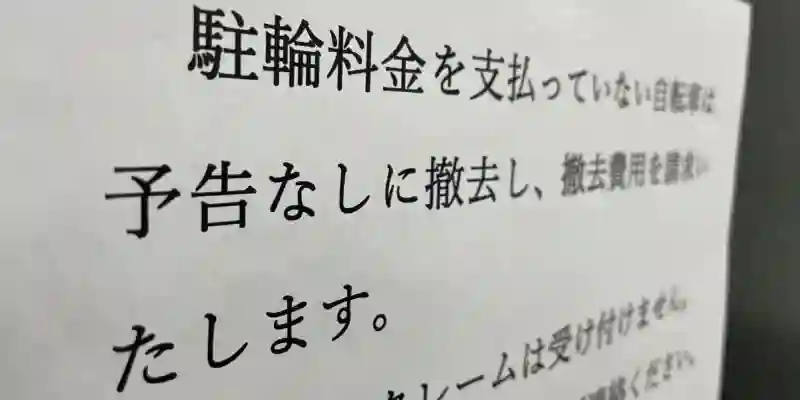 駐輪料金を支払っていない自転車は、
予告なしに撤去し、撤去費用を請求い
たします。
クレームは受け付けません。
連絡ください。